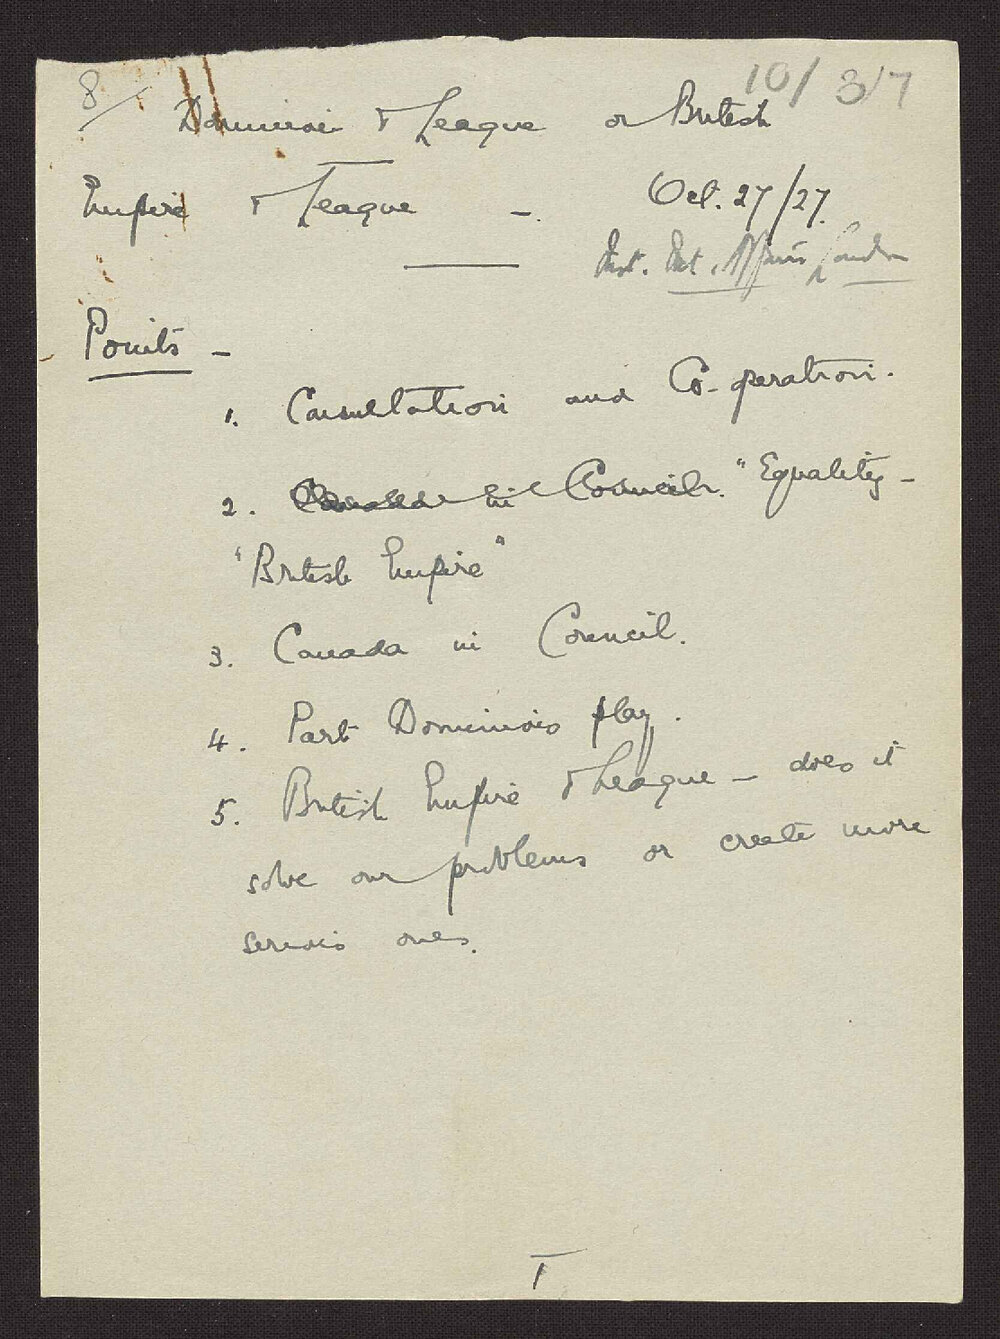 8/
10/3/7
Dominion & League or British
Empire & League -.
Oct. 27/27.
Inst. Int. Affairs, London
Points -
1. Consultation and Co-operation.
2. Canada in Council. "Equality -
"British Empire"
3. Canada in Council.
4. Part Dominions play.
5. British Empire & League - does it
solve our problems or create more
serious ones.
1